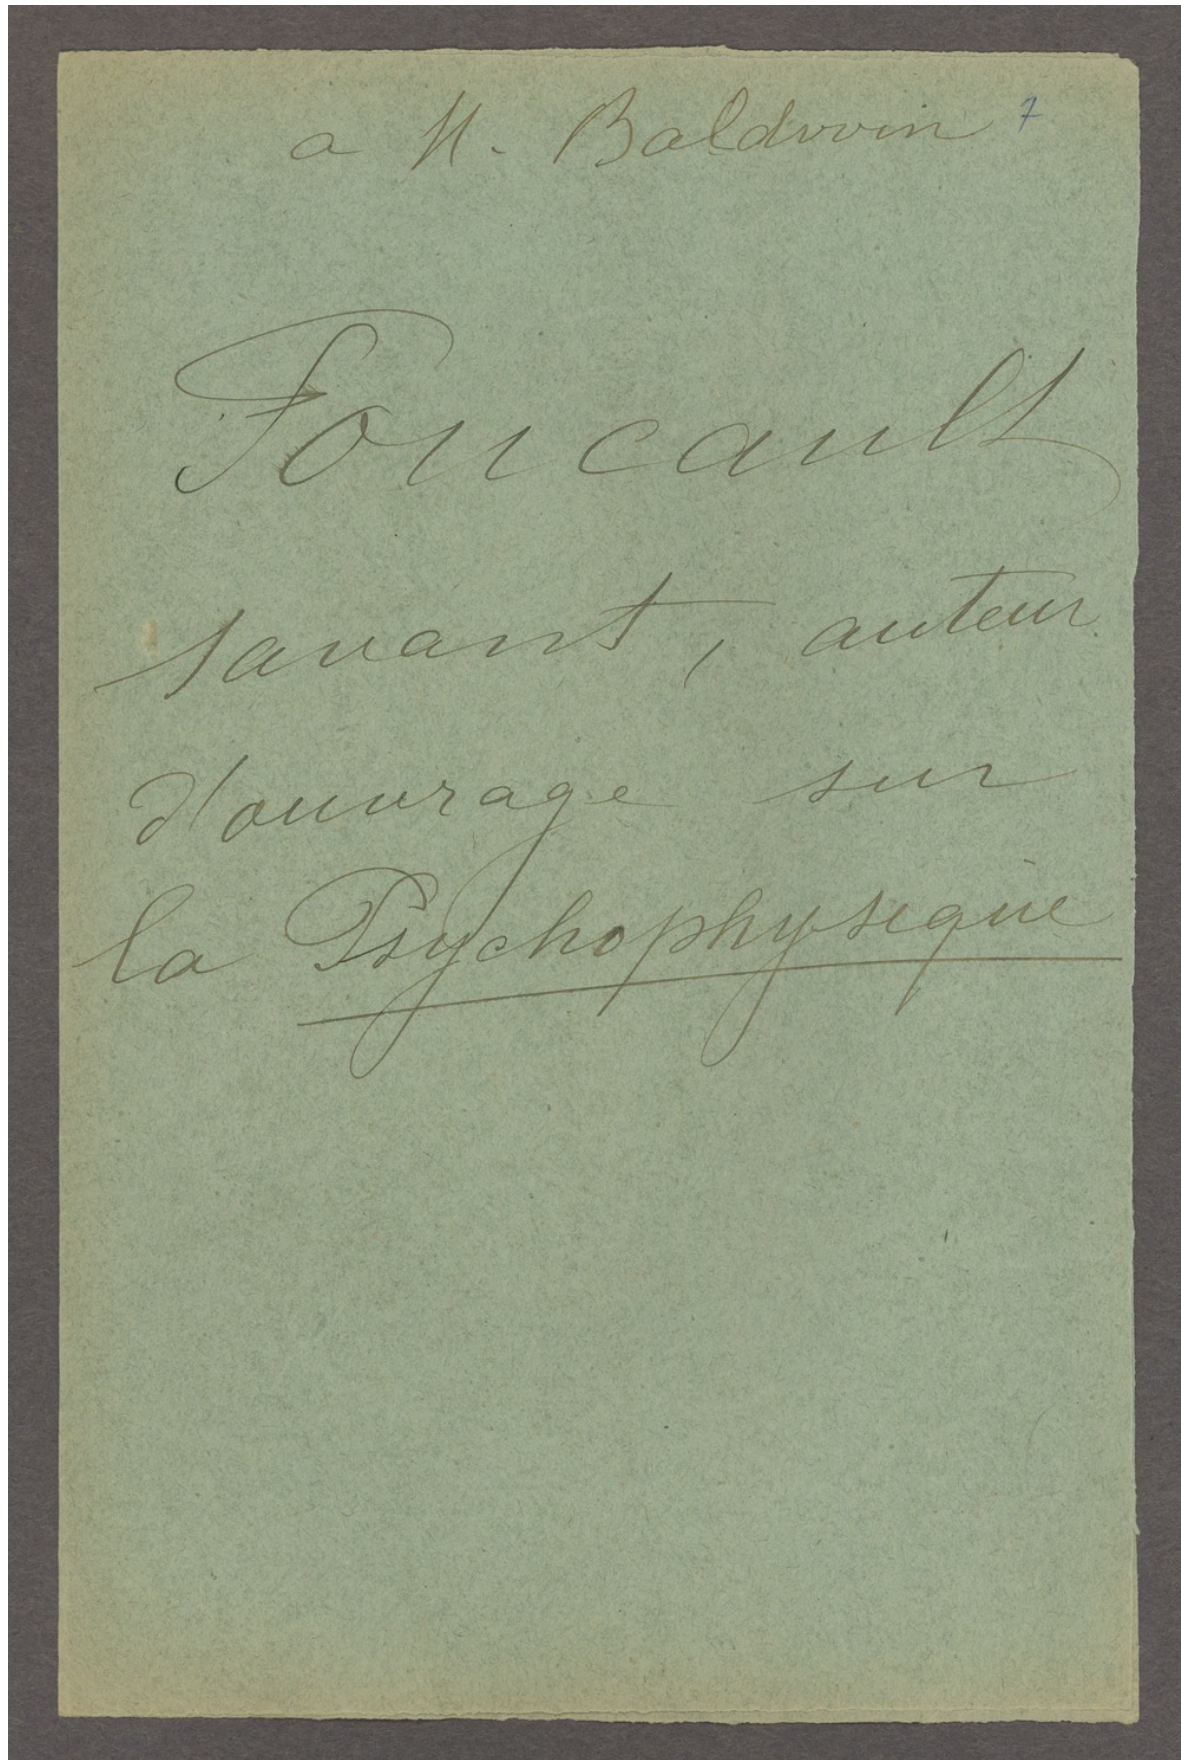 a M. Baldwin 7
Foucault
savant, auteur
d'ouvrage sur
la Psychophysique